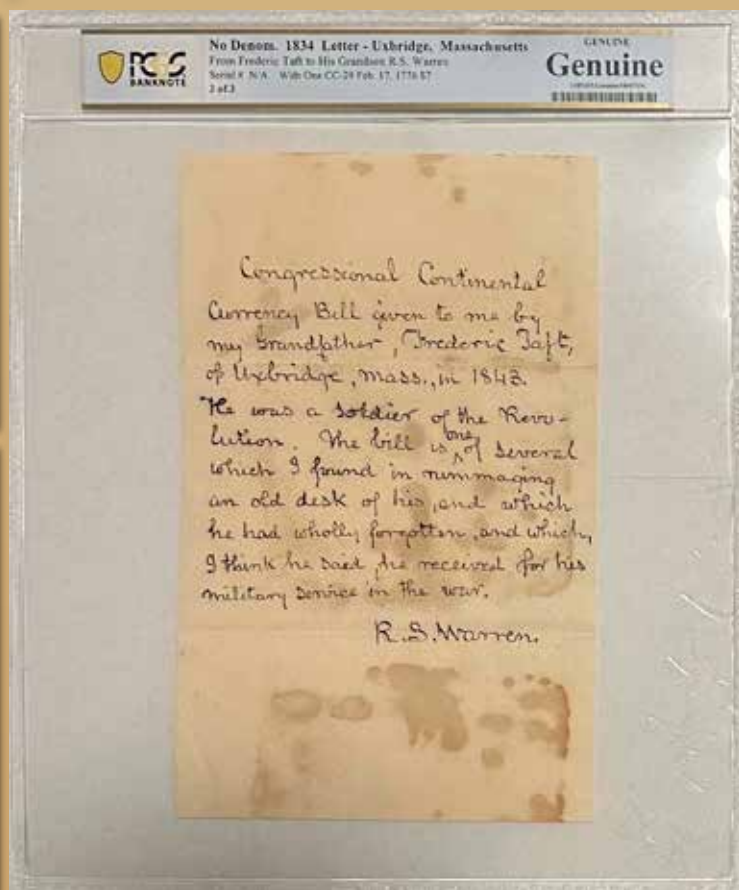 PCGS
BANKNOTE
No Denom. 1834 Letter - Uxbridge, Massachusetts
From Frederic Taft to His Grandson R.S. Warren
Serial # N/A With One CC-29 Feb. 17, 1776 $7
2 of 3
GENUINE
Genuine
Congressional Continental
Currency Bill given to me by
my Grandfather, Frederic Taft,
of Uxbridge, Mass., in 1843.
He was a soldier of the Revo-
lution. The bill is one of several
which I found in rummaging
an old desk of his, and which
he had wholly forgotten, and which,
I think he said, he received for his
military service in the war.
R.S. Warren.